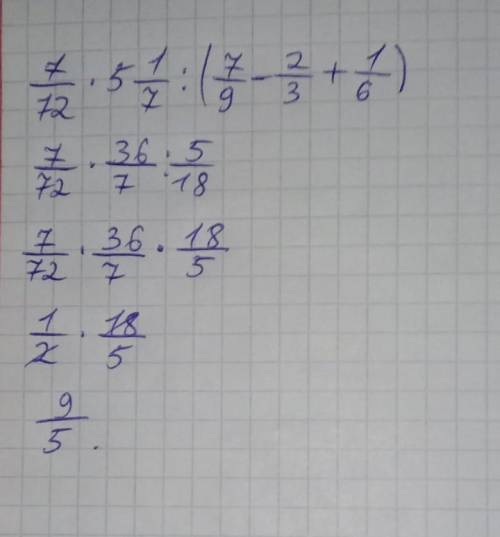 7/72 · 5 1/7 : (7/9 - 2/3 + 1/6)
7/72 · 36/7 : 5/18
7/72 · 36/7 · 18/5
1/2 · 18/5
9/5.